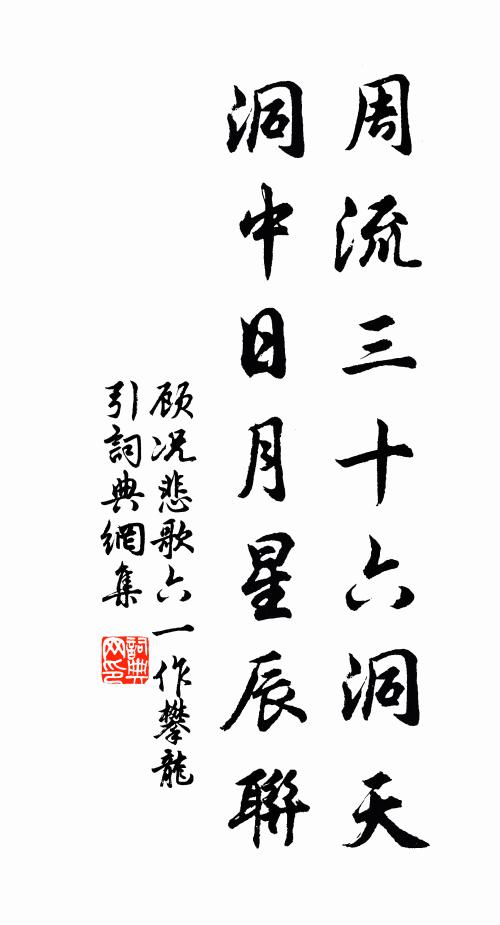 周流三十六洞天
洞中日月星辰聯
顾况悲歌六一作攀龍
引詞典網集
詞典
网印